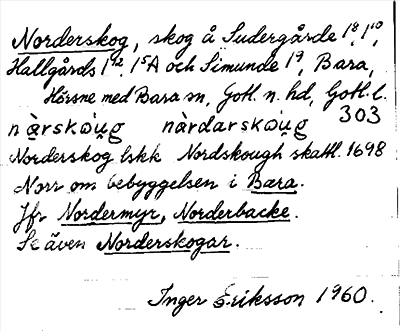 Norderskog, skog å Sudergårde 1⁸, 1¹⁰,
Hallgårds 1¹², 1⁵A och Simunde 1⁹, Bara,
Hörsne med Bara sn, Gotl. n. hd, Gotl. l.
nàrskòu̯g nàrdarskòu̯g 303
Norderskog lskk Nordskough skattl. 1698
Norr om bebyggelsen i Bara.
Jfr Nordermyr, Norderbacke.
Se även Norderskogar.
Inger Eriksson 1960.